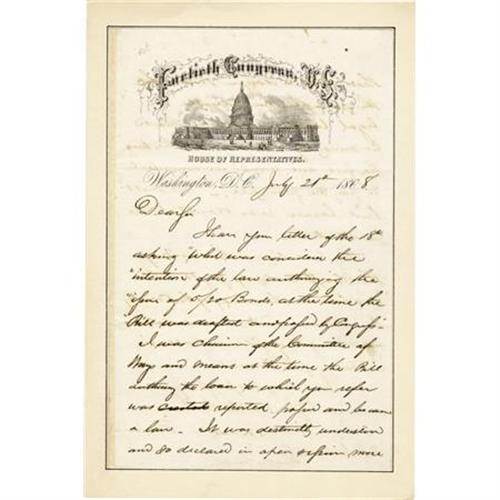 Fortieth Congress, U.S.
HOUSE OF REPRESENTATIVES.
Washington, D.C. July 21st 1868
Dear Sir
I have your letter of the 18th
asking "What was considered the
"intention of the law authorizing the
"issue of 5/20 Bonds, at the time the
"Bill was drafted and passed by Congress"
I was Chairman of the Committee of
Way and means at the time the Bill
authg the loan to which you refer
was reported, passed and became
a law - It was distinctly understood
and so declared in open session more